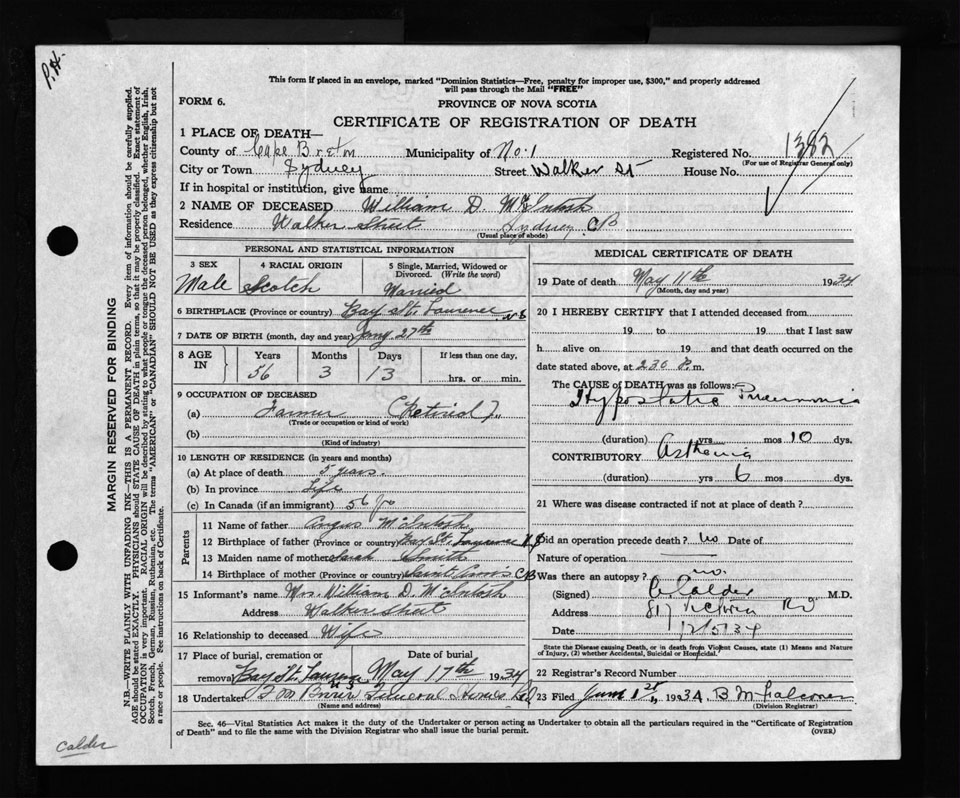 P.H.
This form if placed in an envelope, marked "Dominion Statistics—Free, penalty for improper use, $300," and properly addressed
will pass through the Mail "FREE"
FORM 6.
PROVINCE OF NOVA SCOTIA
CERTIFICATE OF REGISTRATION OF DEATH
1 PLACE OF DEATH—
County of Cape Breton Municipality of No. 1 Registered No. 1382
(For use of Registrar General only)
City or Town Sydney Street Walker St House No.
If in hospital or institution, give name
2 NAME OF DECEASED William D. McIntosh
Residence Walker Street Sydney CB
(Usual place of abode)
PERSONAL AND STATISTICAL INFORMATION
3 SEX 4 RACIAL ORIGIN 5 Single, Married, Widowed or Divorced. (Write the word)
Male Scotch Married
6 BIRTHPLACE (Province or country) Bay St. Laurence N S
7 DATE OF BIRTH (month, day and year) Jany 27th
8 AGE IN Years Months Days If less than one day,
56 3 13 hrs. or min.
9 OCCUPATION OF DECEASED
(a) Farmer (Retired)
(Trade or occupation or kind of work)
(b)
(Kind of industry)
10 LENGTH OF RESIDENCE (in years and months)
(a) At place of death 5 years.
(b) In province Life
(c) In Canada (if an immigrant) 56 yrs
Parents
11 Name of father Angus McIntosh
12 Birthplace of father (Province or country) Bay St. Laurence N S
13 Maiden name of mother Sarah Smith
14 Birthplace of mother (Province or country) Saint Ann's CB
15 Informant's name Mrs. William D. McIntosh
Address Walker Street
16 Relationship to deceased Wife
17 Place of burial, cremation or removal Date of burial
Bay St. Laurence N S May 17th 1934
18 Undertaker Funeral Homes
(Name and address)
MEDICAL CERTIFICATE OF DEATH
19 Date of death May 11th 1934
(Month, day and year)
20 I HEREBY CERTIFY that I attended deceased from
19 to 19 that I last saw
h alive on 19 and that death occurred on the
date stated above, at 2 30 P. m.
The CAUSE OF DEATH was as follows:
Hypostatic Pneumonia
(duration) yrs mos 10 dys.
CONTRIBUTORY Asthenia
(duration) yrs 6 mos dys.
21 Where was disease contracted if not at place of death?
Did an operation precede death? no Date of
Nature of operation
Was there an autopsy? no.
(Signed) Calder M.D.
Address 817 Victoria Rd
Date 12/5/34
State the Disease causing Death, or in death from Violent Causes, state (1) Means and Nature
of Injury, (2) whether Accidental, Suicidal or Homicidal.
22 Registrar's Record Number
23 Filed June 1st 1934. B M Falconer
(Division Registrar)
Sec. 46—Vital Statistics Act makes it the duty of the Undertaker or person acting as Undertaker to obtain all the particulars required in the "Certificate of Registration
of Death" and to file the same with the Division Registrar who shall issue the burial permit.
(OVER)
MARGIN RESERVED FOR BINDING
N.B.—WRITE PLAINLY WITH UNFADING INK—THIS IS A PERMANENT RECORD. Every item of information should be carefully supplied.
AGE should be stated EXACTLY. PHYSICIANS should STATE CAUSE OF DEATH in plain terms, so that it may be properly classified. Exact statement of
OCCUPATION is very important. RACIAL ORIGIN will be described by stating to what people or tongue the deceased person belonged, whether English, Irish,
Scotch, French, German, Russian, Ruthenian, etc. The terms "AMERICAN" or "CANADIAN" SHOULD NOT BE USED as they express citizenship but not
a race or people. See instructions on back of Certificate.
Calder